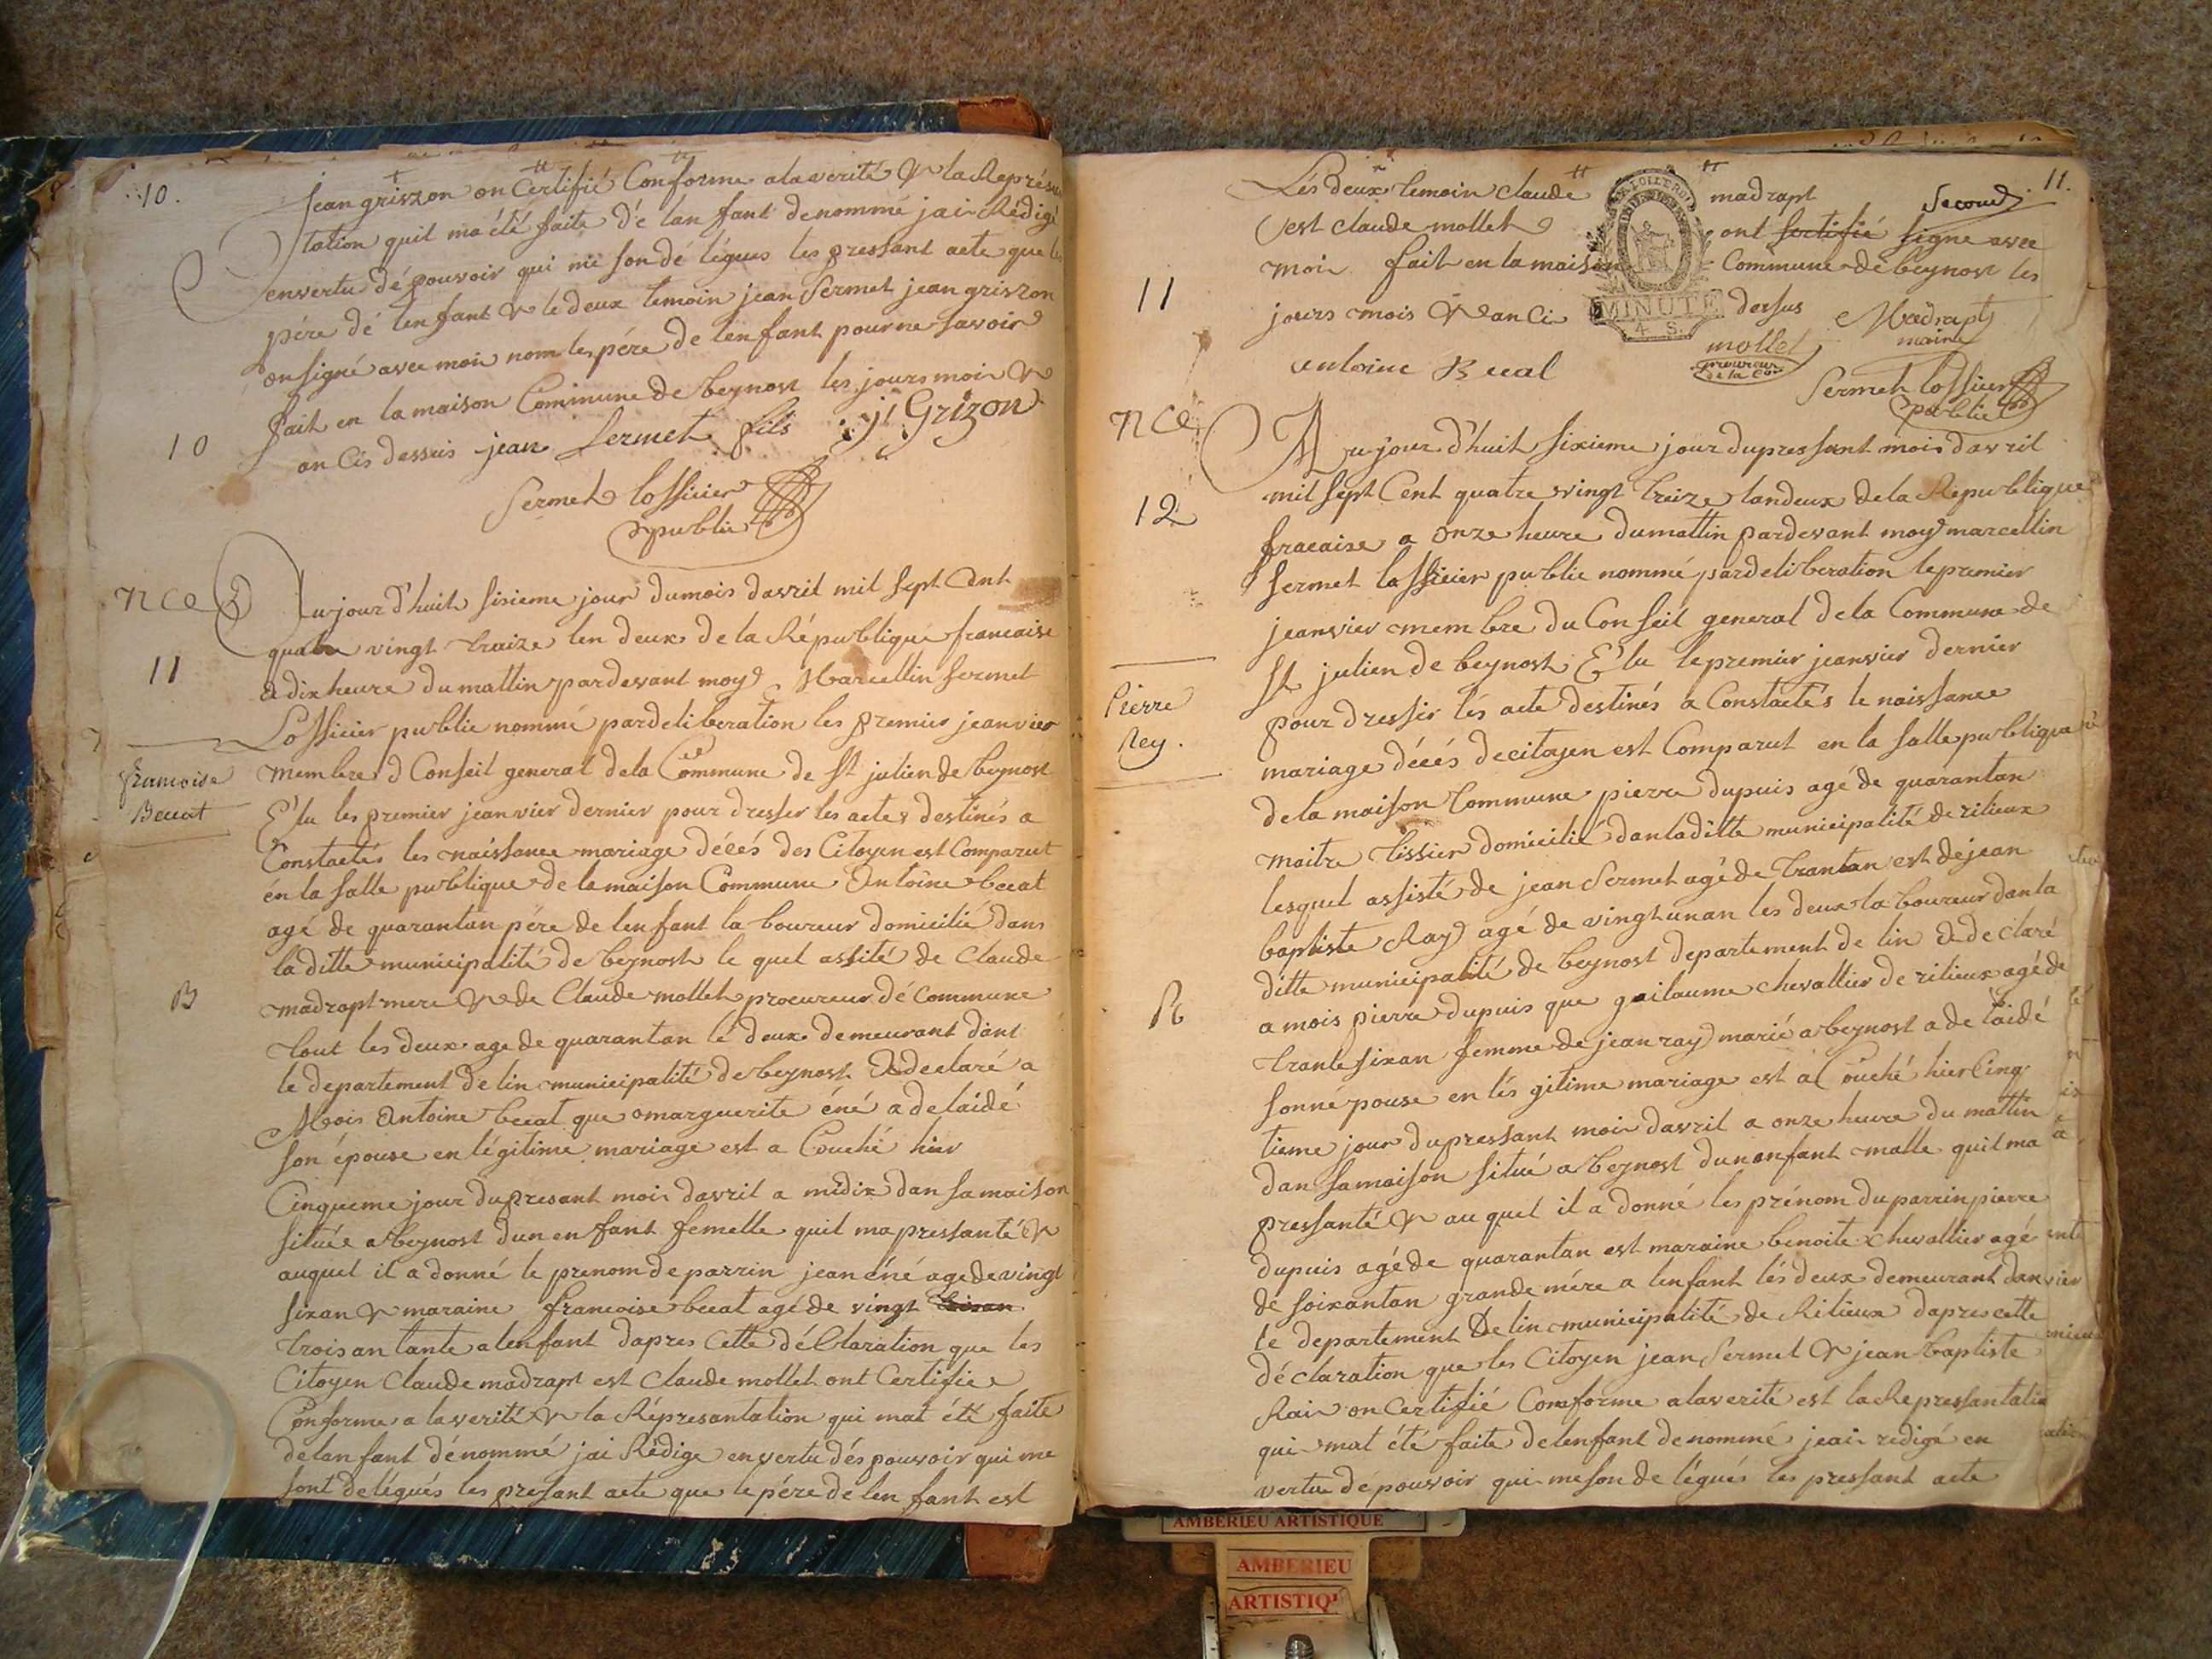 10.
jean griszon on Certifié Conforme alaverité & la Représen
tation quil ma été faite dé lanfant denommé jai Rédigé
envertu dé pouvoir qui me son dé légues les pressant acte que le
pére dé lenfant & le deux temoin jean Sermet jean griszon
on signé avec moi nom les pére de lenfant pour ne savoir
fait en la maison Commune de beynost les jours mois &
10
an Cis dessus jean Sermet fils j. Grizon
Sermet lofficier
public
nce
Aujour d'huit sisieme jour dumois davril mil sept Cent
quatre vingt traize len deux de la République francaise
11
a dix heure du mattin pardevant moy Marcellin Sermet
Lofficier public nommé pardeliberation les premier jeanvier
francoise
Becat
membre d Conseil general dela Commune de St julien de beynost
E'lu les premier jeanvier dernier pour dresser les actes destinés a
Constactés les naissance mariage décés des Citoyen est Comparut
én la salle publique de la maison Commune Antoine becat
agé de quarantan pére de lenfant la boureur domicilié dans
laditte municipalité de beynost le quel assité de Claude
B
madrapt mere & de Claude mollet procureur dé commune
tout les deux age de quarantan lé deux demeurant dant
le departement de lin municipalité de beynost Adeclaré a
Mois Antoine becat que marguerite éné adelaidé
son épouse en légitime mariage est a Couché hier
Cinquieme jour du presant mois davril a midix dan samaison
située a beynost dun enfant femelle quil ma pressanté &
auquel il a donné le prenom de parrin jean éné age de vingt
sixan & maraine francoise becat agé de vingt
troisan tante a lenfant dapres Cette déClaration que les
Citoyen Claude madrapt est Claude mollet ont Certifie
Conforme a la verité & la Répresantation qui mat été faite
de lanfant dénommé jai Rédige en vertu dés pouvoir qui me
sont delégués les presant acte que le pére de len fant est
11.
Lés deux temoin claude madrapt Second
est claude mollet ont sertifié signe avec
moi fait en la maison Commune de beynost les
11
jours mois & an Ci dessus
MINUTE
4 S.
Madrapt
maire
mollet
procureur
de la Co
antoine Becal
Sermet lofficier
public
nce
Aujour d'huit sixieme jour dupressant mois davril
12
mil sept Cent quatre vingt treize landeux dela Republique
fracaise a onze heure dumattin pardevant moy marcellin
Sermet lofficier public nommé pardeliberation le premier
jeanvier membre du Conseil general dela Commune de
St julien de beynost E'lu le premier jeanvier dernier
Pierre
Rey.
pour dressir lés acte destinés a Constactés le naissance
mariage décés decitoyen est Comparut en la salle publique
dela maison Commune pierre dupuis agé de quarantan
maitre tissier domicilié danladitte municipalité de rilieux
lesquel assisté de jean Sermet agé de trantan est dejean
baptiste Ray agé de vingt unan les deux la boureur danla
ditte municipalité de beynost departement de lin Adeclaré
R
a mois pierre dupuis que guilaume chevallier de rilieux agé de
trante sixan femme de jean ray marié a beynost a de laidé
sonné pouse en lés gitime mariage est a Couché hier Cinq
tieme jour dupressant mois davril a onze heure du mattin
dan samaison situé a beynost dunanfant malle quil ma
pressanté & au quel il a donné les prénom duparrin pierre
dupuis agé de quarantan est maraine benoite chevallier agé
de soixantan grande mére a lenfant lés deux demeurant dan
le departement De lin municipalité de Rilieux dapres cette
déclaration que les Citoyen jean Sermet & jean baptiste
Rai on Certifié Comforme alaverité est la Repressantatio
qui mat été faite delenfant denommé jeai redigé en
vertu dé pouvoir qui me son de légués les pressant acte
AMBERIEU ARTISTIQUE
AMBERIEU
ARTISTIQ